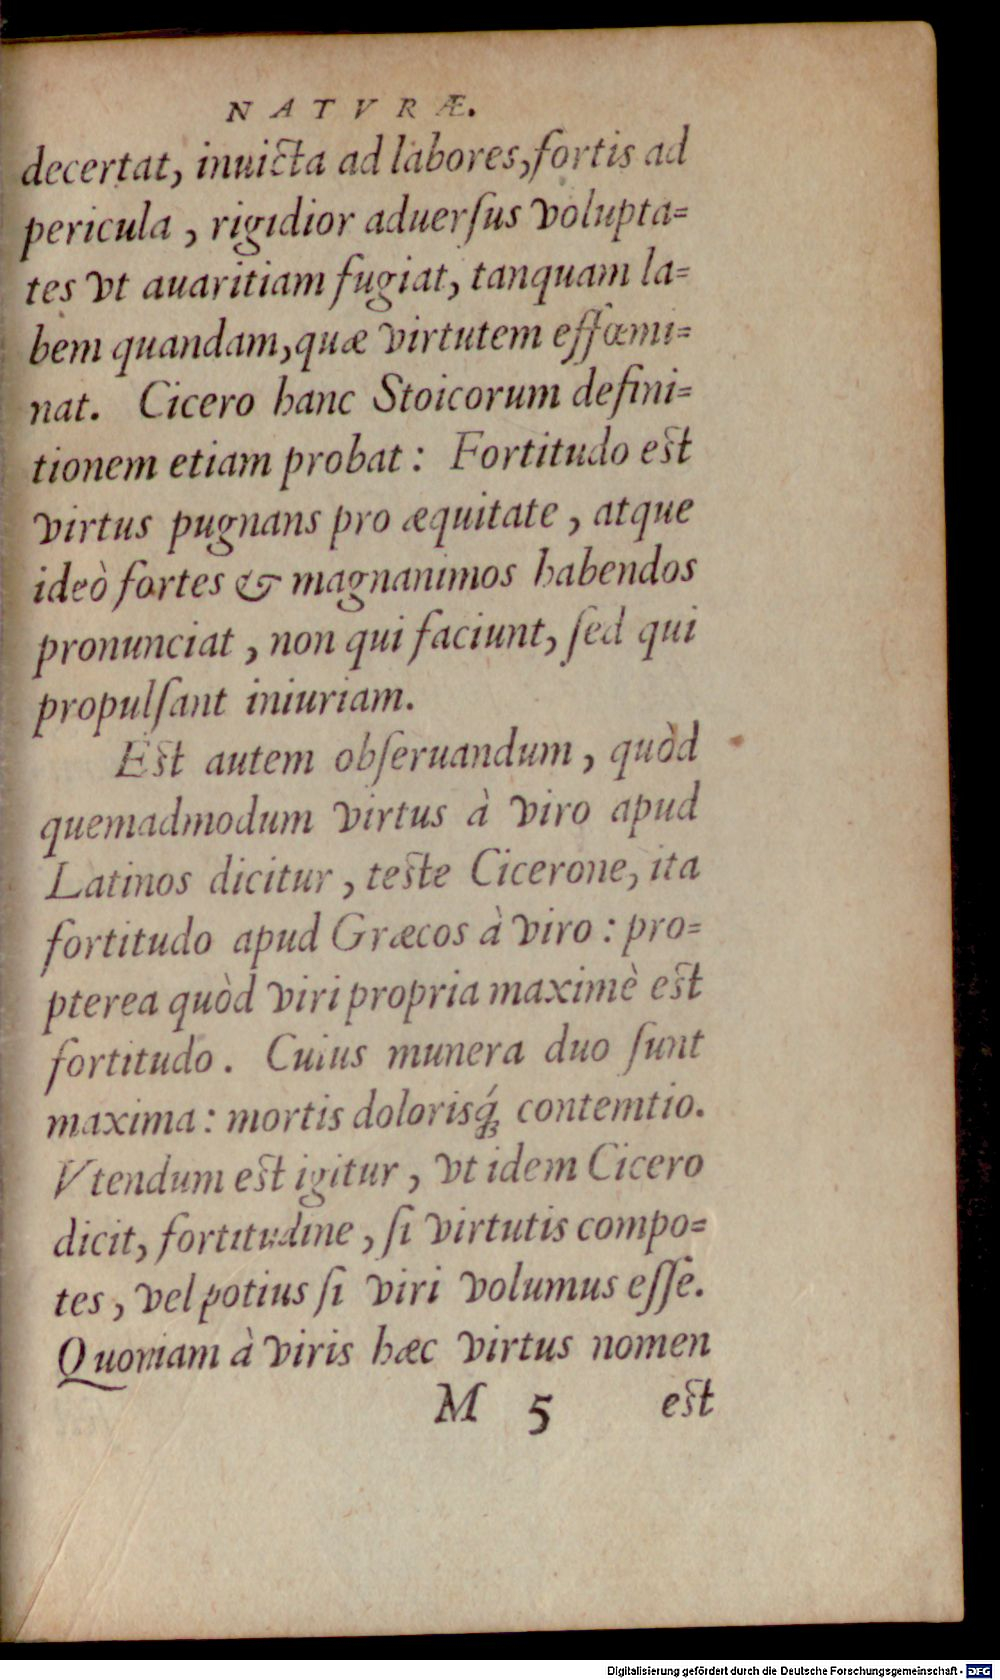 NATVRÆ.
decertat, inuicta ad labores, fortis ad
pericula, rigidior aduerſus volupta=
tes vt auaritiam fugiat, tanquam la=
bem quandam, quæ virtutem effœmi=
nat. Cicero hanc Stoicorum defini=
tionem etiam probat: Fortitudo est
virtus pugnans pro æquitate, atque
ideò fortes & magnanimos habendos
pronunciat, non qui faciunt, ſed qui
propulſant iniuriam.
Est autem obſeruandum, quòd
quemadmodum virtus à viro apud
Latinos dicitur, teste Cicerone, ita
fortitudo apud Græcos à viro: pro=
pterea quòd viri propria maximè est
fortitudo. Cuius munera duo ſunt
maxima: mortis dolorisq́; contemtio.
Vtendum est igitur, vt idem Cicero
dicit, fortitudine, ſi virtutis compo=
tes, vel potius ſi viri volumus eſſe.
Quoniam à viris hæc virtus nomen
M 5 est
Digitalisierung gefördert durch die Deutsche Forschungsgemeinschaft - DFG